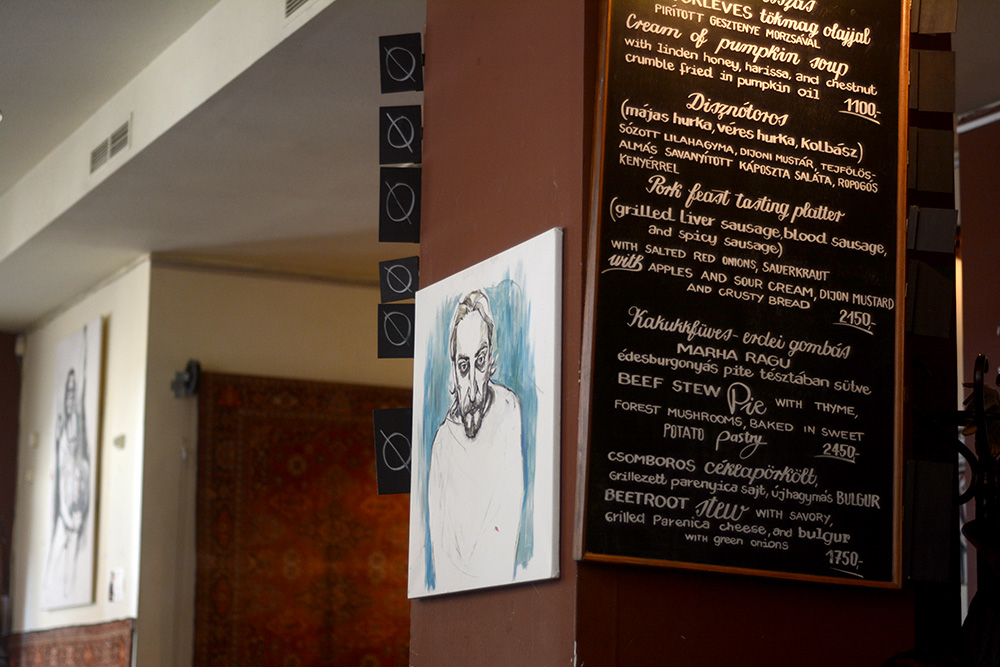 TÖKLEVES tökmag olajjal
PIRÍTOTT GESZTENYE MORZSÁVAL
Cream of pumpkin soup
with linden honey, harissa, and chestnut
crumble fried in pumpkin oil
1100,-
Disznótoros
(májas hurka, véres hurka, kolbász)
SÓZOTT LILAHAGYMA, DIJONI MUSTÁR, TEJFÖLÖS-
ALMÁS SAVANYÍTOTT KÁPOSZTA SALÁTA, ROPOGÓS
KENYÉRREL
Pork feast tasting platter
(grilled Liver sausage, blood sausage,
and spicy sausage)
WITH SALTED RED ONIONS, SAUERKRAUT
with APPLES AND SOUR CREAM, DIJON MUSTARD
AND CRUSTY BREAD
2150,-
Kakukkfüves- erdei gombás
MARHA RAGU
édesburgonyás pite tésztában sütve
BEEF STEW Pie WITH THYME,
FOREST MUSHROOMS, BAKED IN SWEET
POTATO Pastry
2450,-
CSOMBOROS céklapörkölt,
Grillezett parenyica sajt, újhagymás BULGUR
BEETROOT stew WITH SAVORY,
Grilled Parenica cheese, and bulgur
with green onions
1750,-